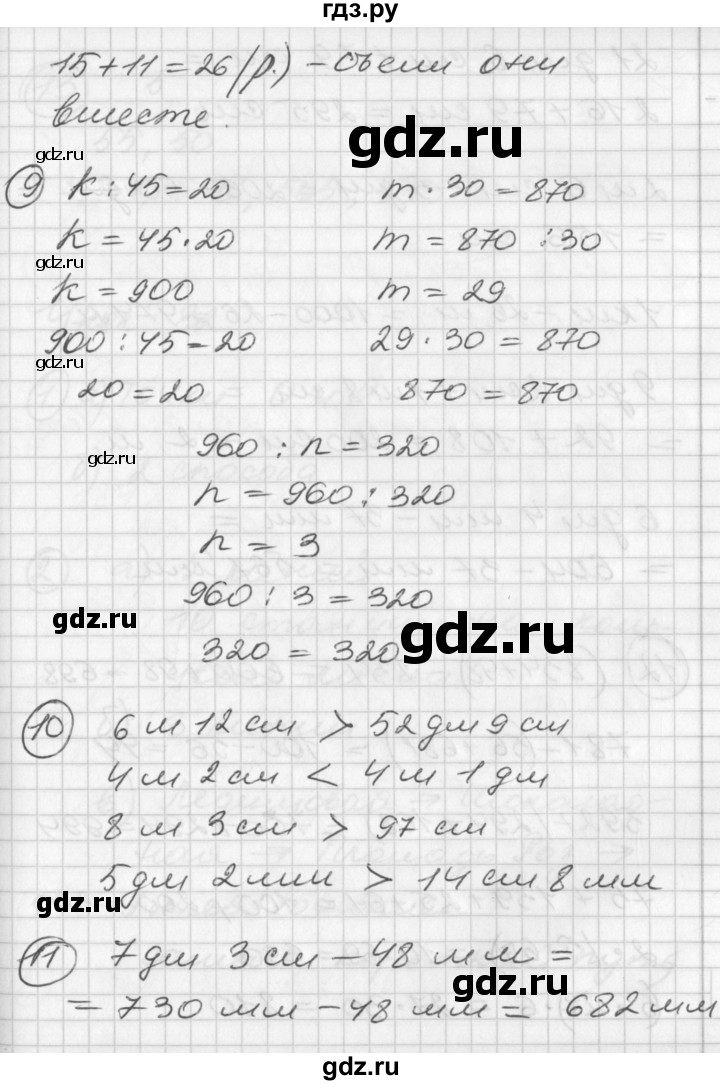 гдз.ру
15+11=26(р.) – съели они
вместе.
gdz.ru
gdz.ru
9 k : 45 = 20 m · 30 = 870
k = 45 · 20 m = 870 : 30
gdz.ru
k = 900 m = 29
900 : 45 = 20 29 · 30 = 870
gdz.ru
20 = 20 870 = 870
960 : n = 320
gdz.ru
n = 960 : 320
n = 3
960 : 3 = 320
gdz.ru
320 = 320
gdz.ru
10 6 м 12 см > 52 дм 9 см
4 м 2 см < 4 м 1 дм
8 м 3 см > 97 см
5 дм 2 мм > 14 см 8 мм
gdz.ru
11 7 дм 3 см – 48 мм =
gdz.ru
= 730 мм – 48 мм = 682 мм
gdz.ru
gdz.ru